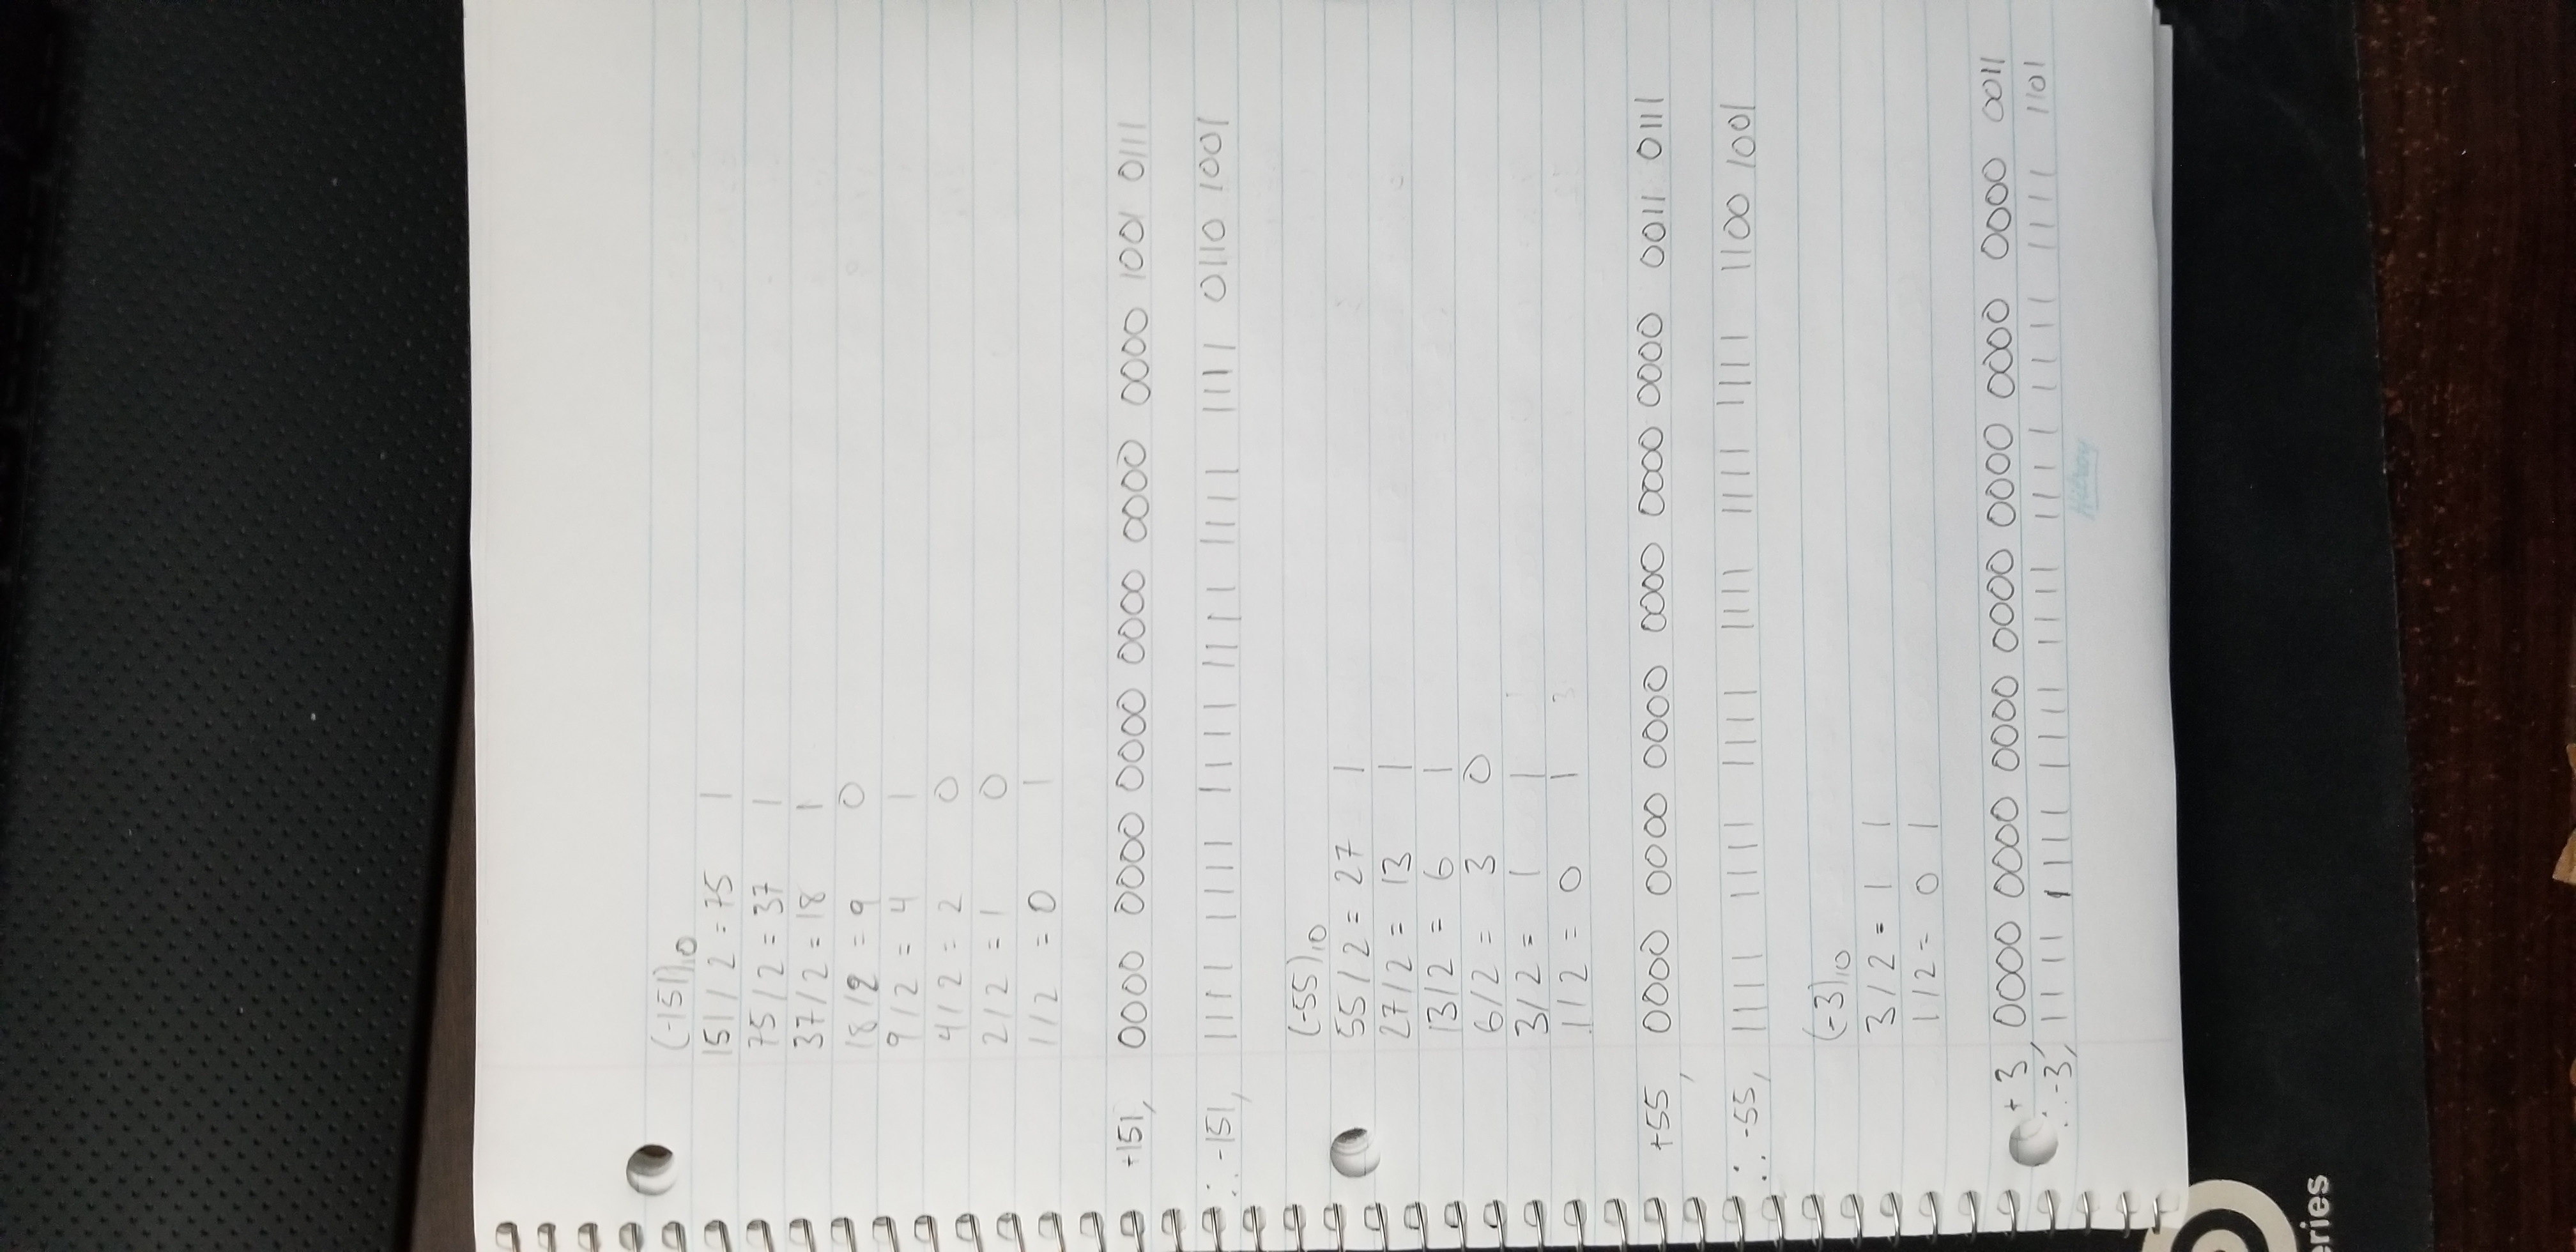 (-151)10
151/2 = 75 1
75/2 = 37 1
37/2 = 18 1
18/2 = 9 0
9/2 = 4 1
4/2 = 2 0
2/2 = 1 0
1/2 = 0 1
+151, 0000 0000 0000 0000 0000 0000 1001 0111
∴ -151, 1111 1111 1111 1111 1111 1111 0110 1001
(-55)10
55/2 = 27 1
27/2 = 13 1
13/2 = 6 1
6/2 = 3 0
3/2 = 1 1
1/2 = 0 1
+55, 0000 0000 0000 0000 0000 0000 0011 0111
∴ -55, 1111 1111 1111 1111 1111 1111 1100 1001
(-3)10
3/2 = 1 1
1/2 = 0 1
+3, 0000 0000 0000 0000 0000 0000 0000 0011
∴ -3, 1111 1111 1111 1111 1111 1111 1111 1101
Hilroy
eries